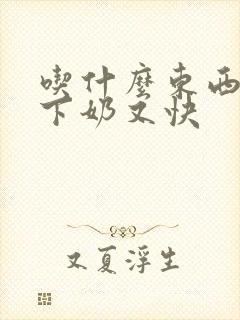 喫什麼東西
下奶又快
又夏浮生